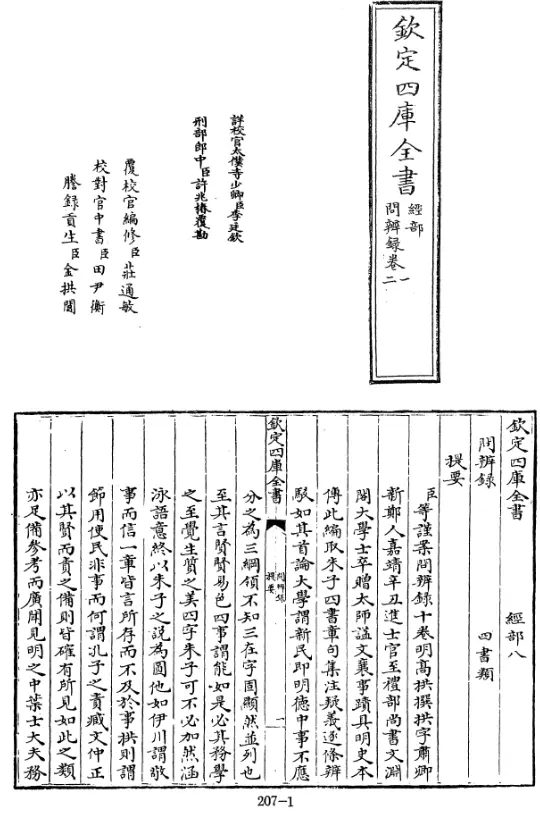 欽定四庫全書
經部
問辨録卷一
二
詳校官太僕寺少卿臣李廷欽
刑部郎中臣許兆椿覆勘
覆校官編修臣莊通敏
校對官中書臣田尹衡
謄録貢生臣金拱閶
欽定四庫全書 經部八
問辨録 四書類
提要
臣等謹案問辨録十卷明高拱撰拱字肅卿
新鄭人嘉靖辛丑進士官至禮部尚書文淵
閣大學士卒贈太師諡文襄事蹟具明史本
傳此編取朱子四書章句集注疑義逐條辨
駁如其首論大學謂新民即明德中事不應
欽定四庫全書
問辨録
提要
一
分之為三綱領不知三在字固顯然並列也
至其言賢賢易色四事謂能如是必其務學
之至覺生質之美四字朱子可不必加然涵
泳語意終以朱子之說為圓他如伊川謂敬
事而信一章皆言所存而不及於事拱則謂
節用使民非事而何謂孔子之責臧文仲正
以其賢而責之備則皆確有所見如此之類
亦足備參考而廣聞見明之中葉士大夫務
207-1